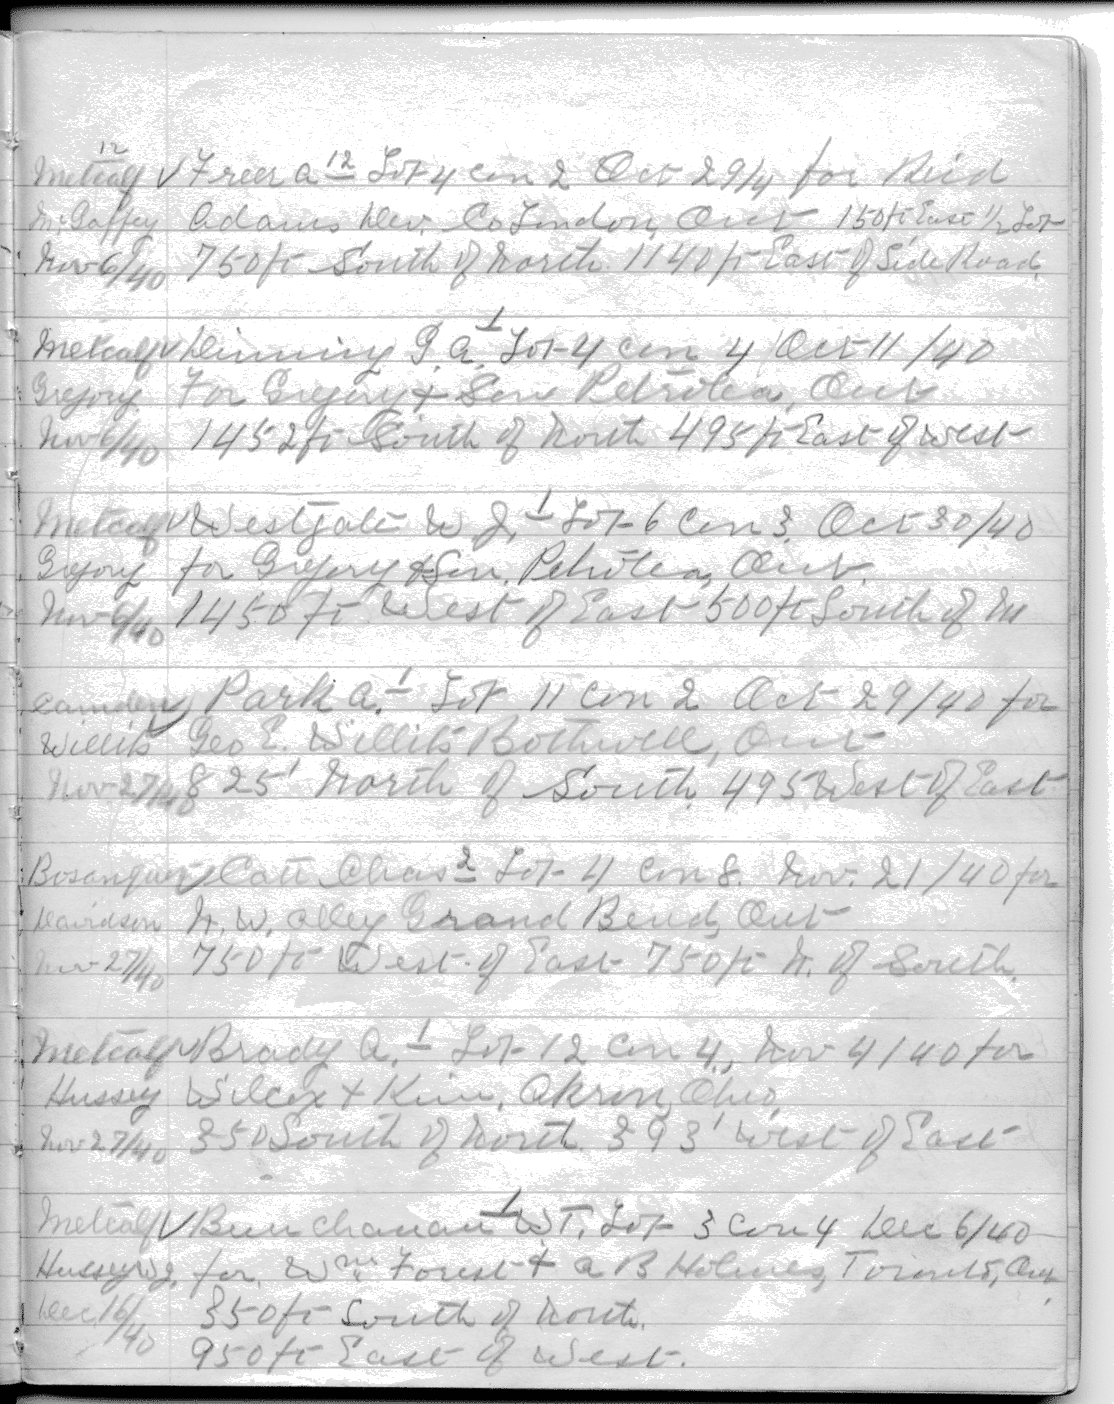 12
Metcalf √ Freer A 12 Lot 4 Con 2 Oct 29/4 for Reid
McGaffey Adams Dev. Co London, Ont 150ft East 1/2 Lot
Nov 6/40 750ft South of North 1140ft East of Side Road.
Metcalf √ Dinning G. A. 1 Lot 4 Con 4 Oct 11/40
Gregory For Gregory & Son Petrolea, Ont
Nov 6/40 1452ft South of North 495ft East of West
Metcalf √ Westgate W. J. 1 Lot 6 Con 3. Oct 30/40
Gregory for Gregory & Son, Petrolea, Ont.
Nov 6/40 1450 ft West of East 500ft South of N
Camden √ Park A. 1 Lot 11 Con 2 Oct 29/40 for
Willits Geo E. Willits Bothwell, Ont
Nov 27/40 825' North of South. 495 West of East
Bosanquet √ Catt Chas 2 Lot 4 Con 8. Nov. 21/40 for
Davidson N. W. Alley Grand Bend, Ont
Nov 27/40 750ft West of East 750ft N. of South.
Metcalf √ Brady A. 1 Lot 12 Con 4, Nov 4/40 for
Hussey Wilcox & Kim, Akron, Ohio,
Nov 27/40 350 South of North. 393' West of East
Metcalf √ 1 W. T. Lot 3 Con 4 Dec 6/40
Hussey W J. for. Wm. Forest & A B Holmes, Toronto, Ont.
Dec. 16/40 350ft South of North.
950ft East of West.